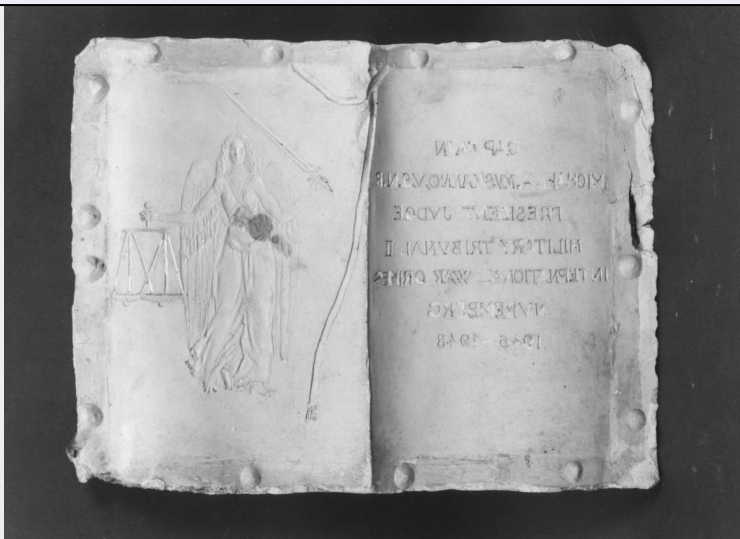 CAPTAIN
MICHAEL A. MVSMANNO, V.S.N.R
PRESIDENT JVDGE
MILITARY TRIBVNAL II
INTERNATIONAL WAR CRIMES
NVREMBERG
1946-1948